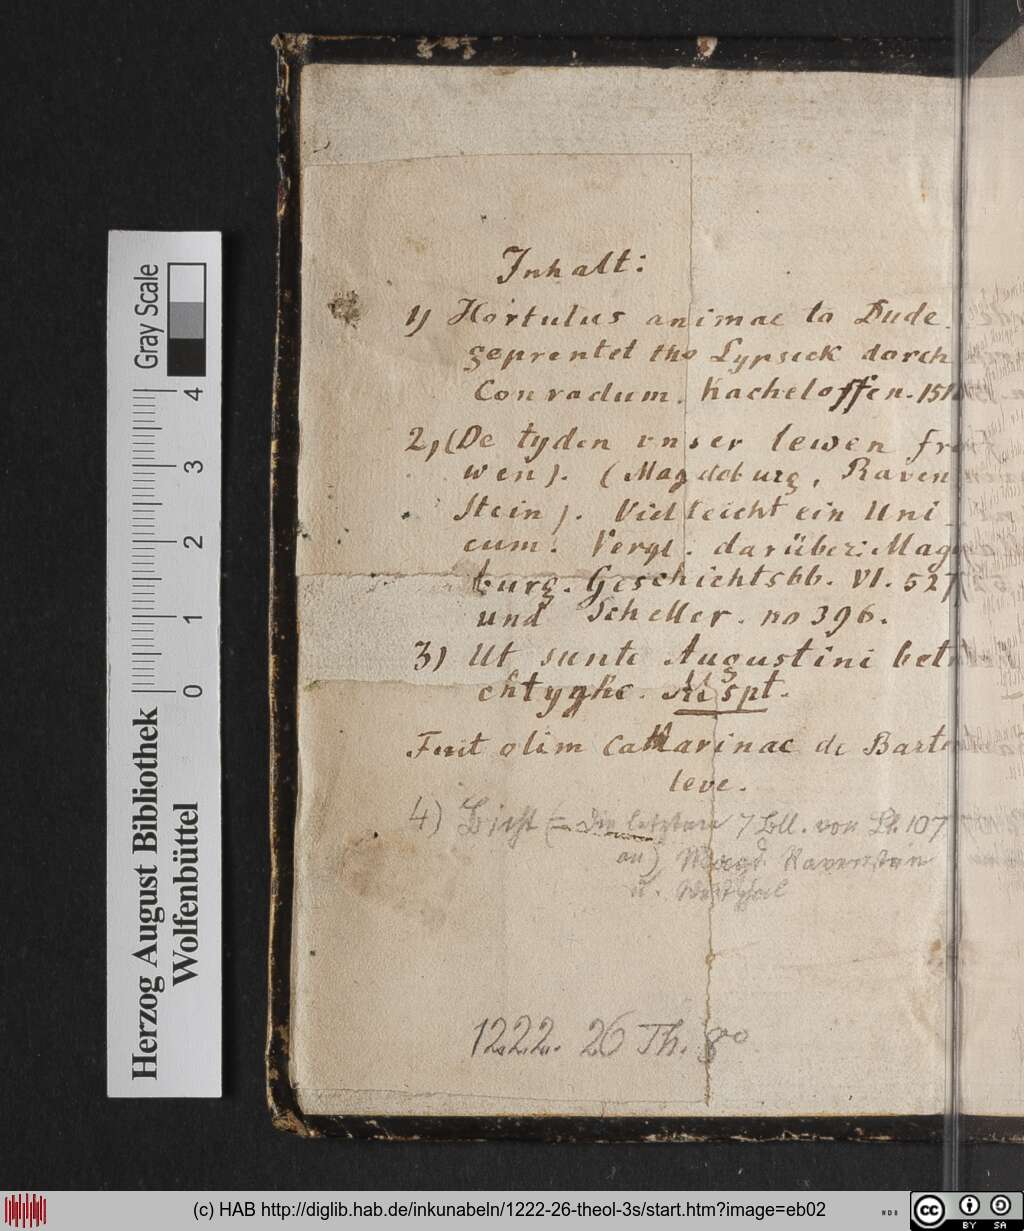 Inhalt:
1) Hortulus animae to Dude.
geprentet tho Lypseck dorch
Conradum. Kacheloffen. 151
2, (De tyden vnser lewen fro
wen). (Magdeburg, Raven
Stein). Vielleicht ein Uni
cum. Vergl. darüber: Mag
burg. Geschichtsbb. VI. 527
und Scheller. no 396.
3) Ut sunte Augustini betr
chtyghe. Mspt.
Fuit olim Catharinae de Barte
leve.
4) Bicht (= die letzten 7 Bll. von Bl. 107
an) Magd. Ravenstein
u. Westphal
1222. 26 Th. 8o
Gray Scale
0 1 2 3 4
Herzog August Bibliothek
Wolfenbüttel
(c) HAB http://diglib.hab.de/inkunabeln/1222-26-theol-3s/start.htm?image=eb02
cc BY SA